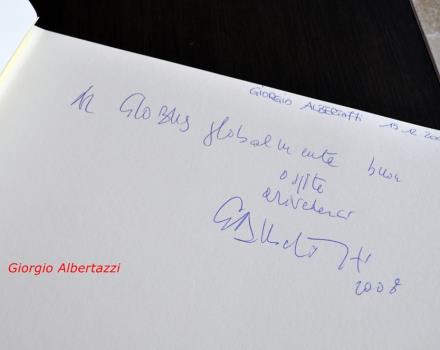 GIORGIO ALBERTAZZI 15 12 200
Al Globus globalmente buon
ospite
arrivederci
2008
Giorgio Albertazzi